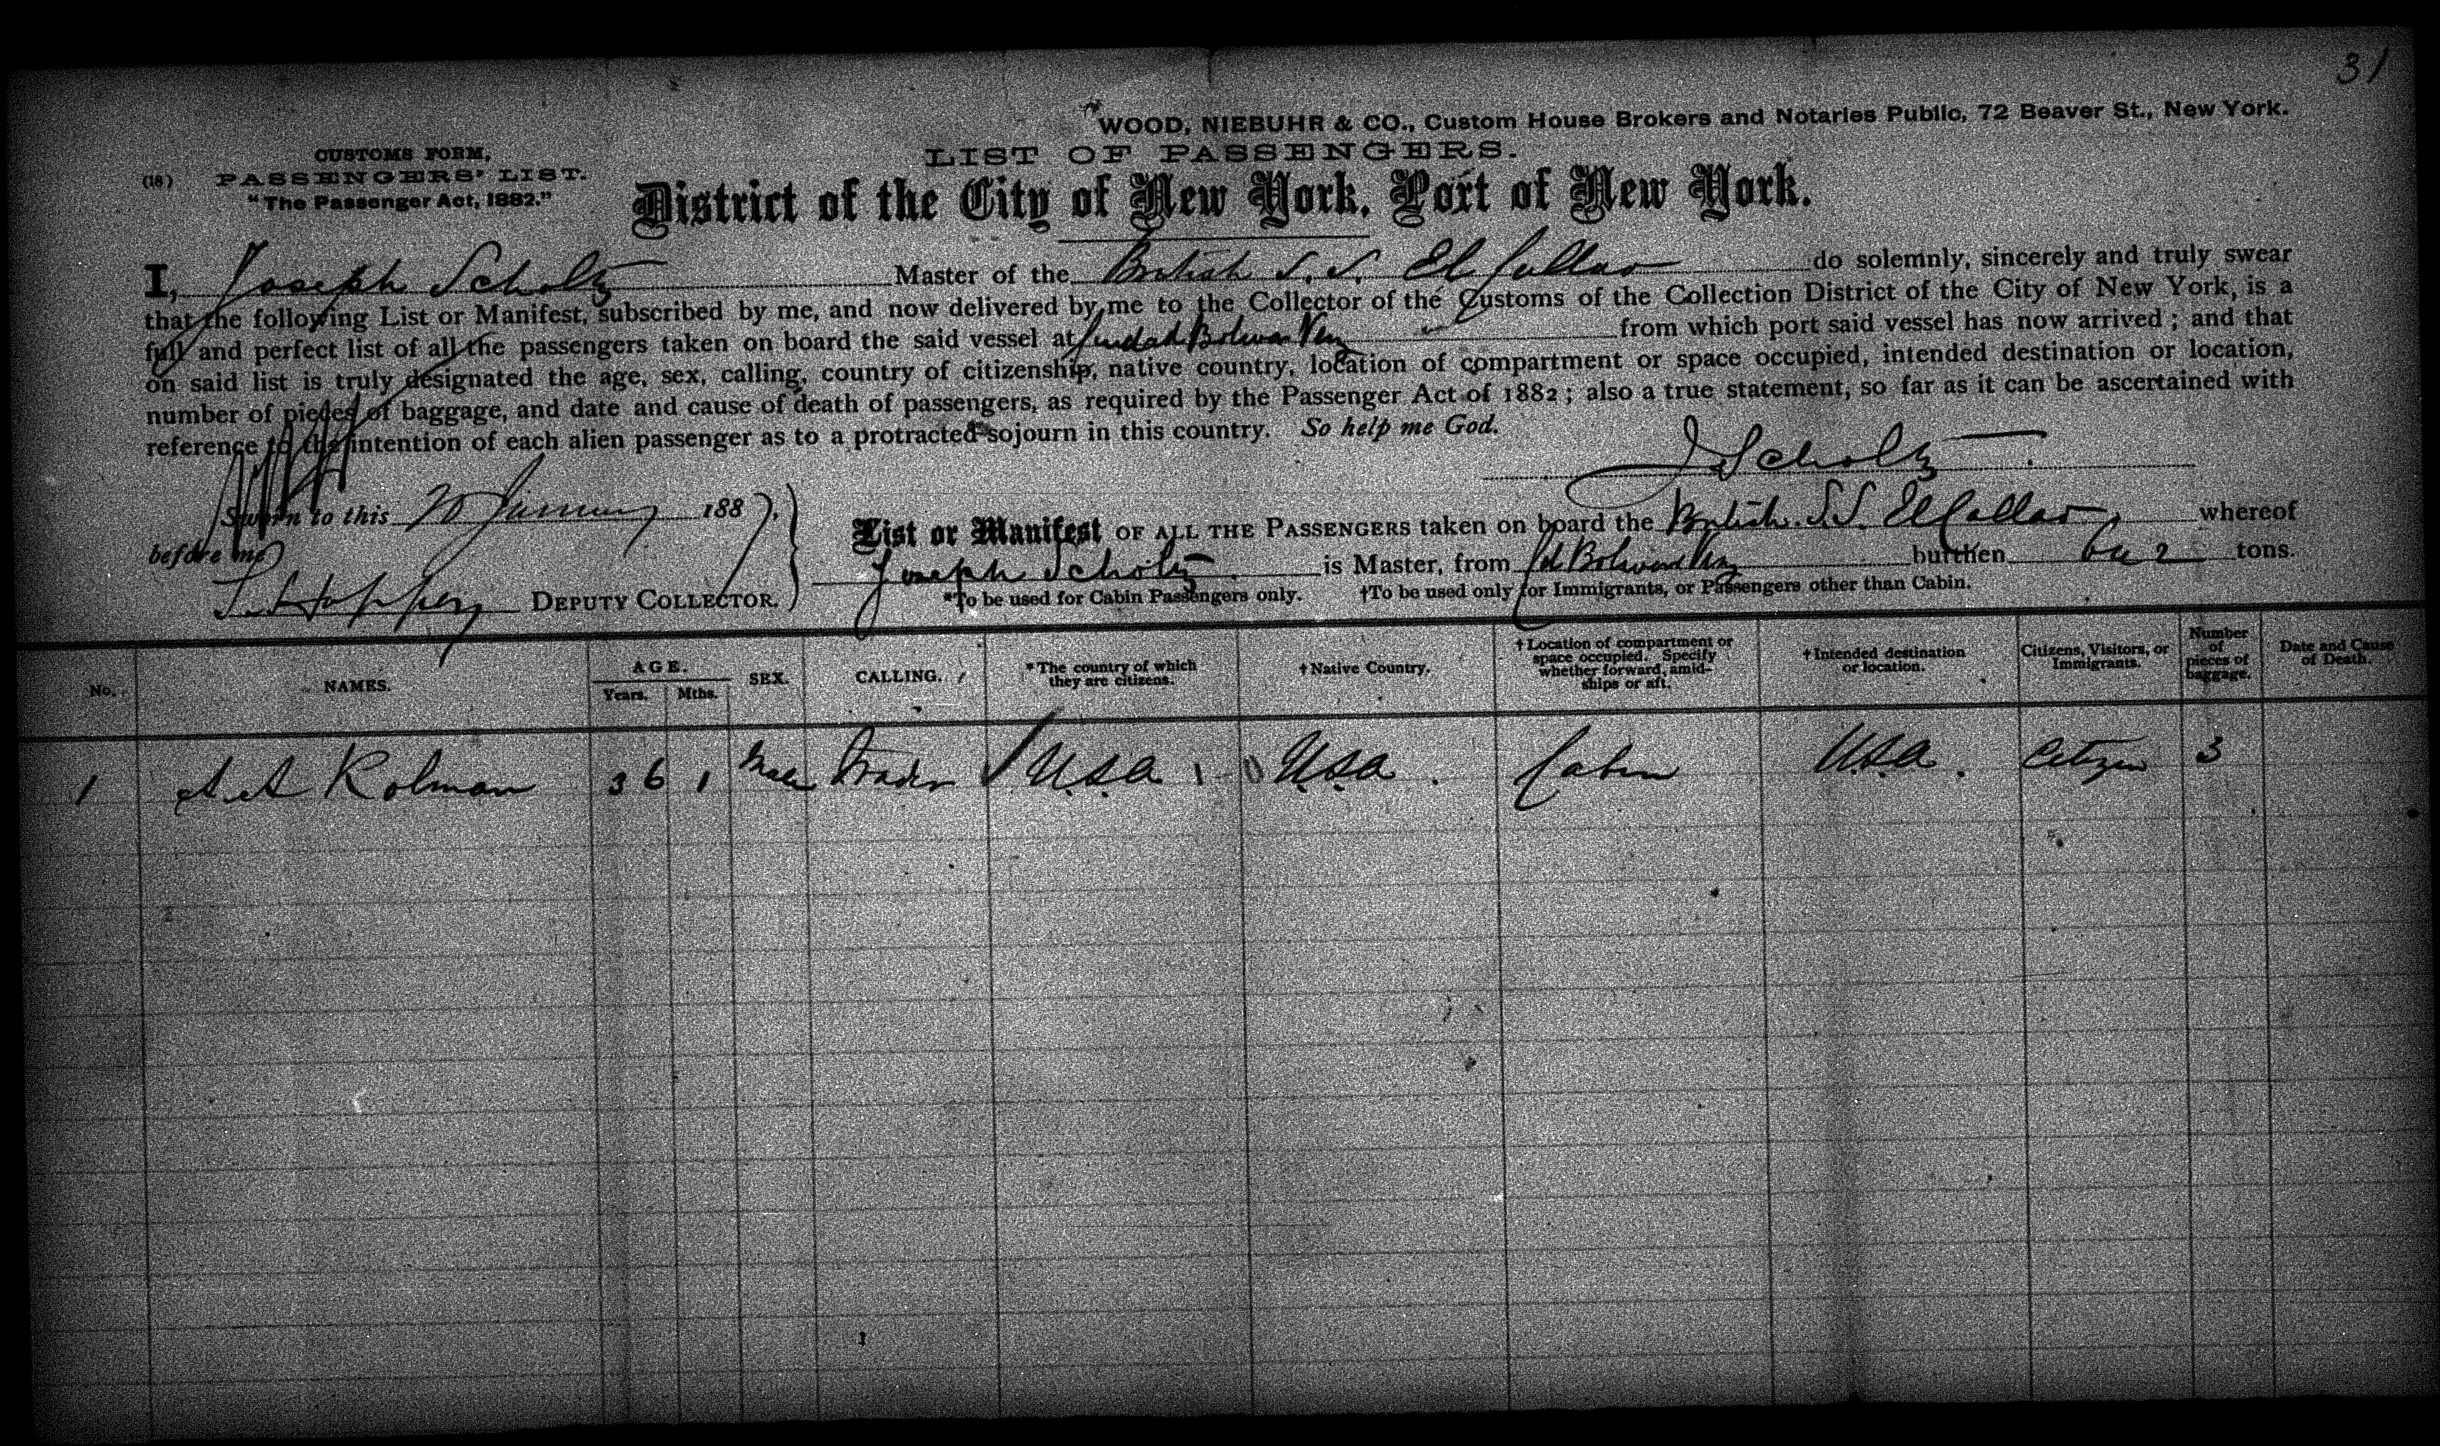 31
WOOD, NIEBUHR & CO., Custom House Brokers and Notaries Public, 72 Beaver St., New York.
CUSTOMS FORM,
(18) PASSENGERS' LIST.
"The Passenger Act, 1882."
LIST OF PASSENGERS.
District of the City of New York, Port of New York.
I, Joseph Scholtz Master of the British S.S. El Callao do solemnly, sincerely and truly swear
that the following List or Manifest, subscribed by me, and now delivered by me to the Collector of the Customs of the Collection District of the City of New York, is a
full and perfect list of all the passengers taken on board the said vessel at Bolivar Ven from which port said vessel has now arrived; and that
on said list is truly designated the age, sex, calling, country of citizenship, native country, location of compartment or space occupied, intended destination or location,
number of pieces of baggage, and date and cause of death of passengers, as required by the Passenger Act of 1882; also a true statement, so far as it can be ascertained with
reference to the intention of each alien passenger as to a protracted sojourn in this country. So help me God.
J. Scholtz
Sworn to this 20 January 1887.
before me
DEPUTY COLLECTOR.
List or Manifest OF ALL THE PASSENGERS taken on board the British S.S. El Callao, whereof
Joseph Scholtz is Master, from Cd Bolivar Ven burthen tons.
*To be used for Cabin Passengers only. †To be used only for Immigrants, or Passengers other than Cabin.
No. NAMES. AGE. Years. Mths. SEX. CALLING. *The country of which they are citizens. †Native Country. †Location of compartment or space occupied. Specify whether forward, amidships or aft. †Intended destination or location. Citizens, Visitors, or Immigrants. Number of pieces of baggage. Date and Cause of Death.
1 A. A Kolman 36 1 Male Trader U.S.A U.S.A. Cabin U.S.A. Citizen 3